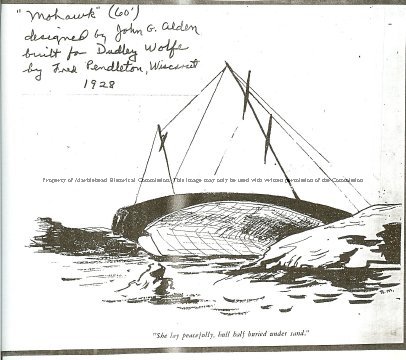 "Mohawk" (60')
designed by John G. Alden
built for Dudley Wolfe
by Fred Pendleton, Wiscasset
1928
Property of Marblehead Historical Commission. This image may only be used with written permission of the Commission
"She lay peacefully, hull half buried under sand."